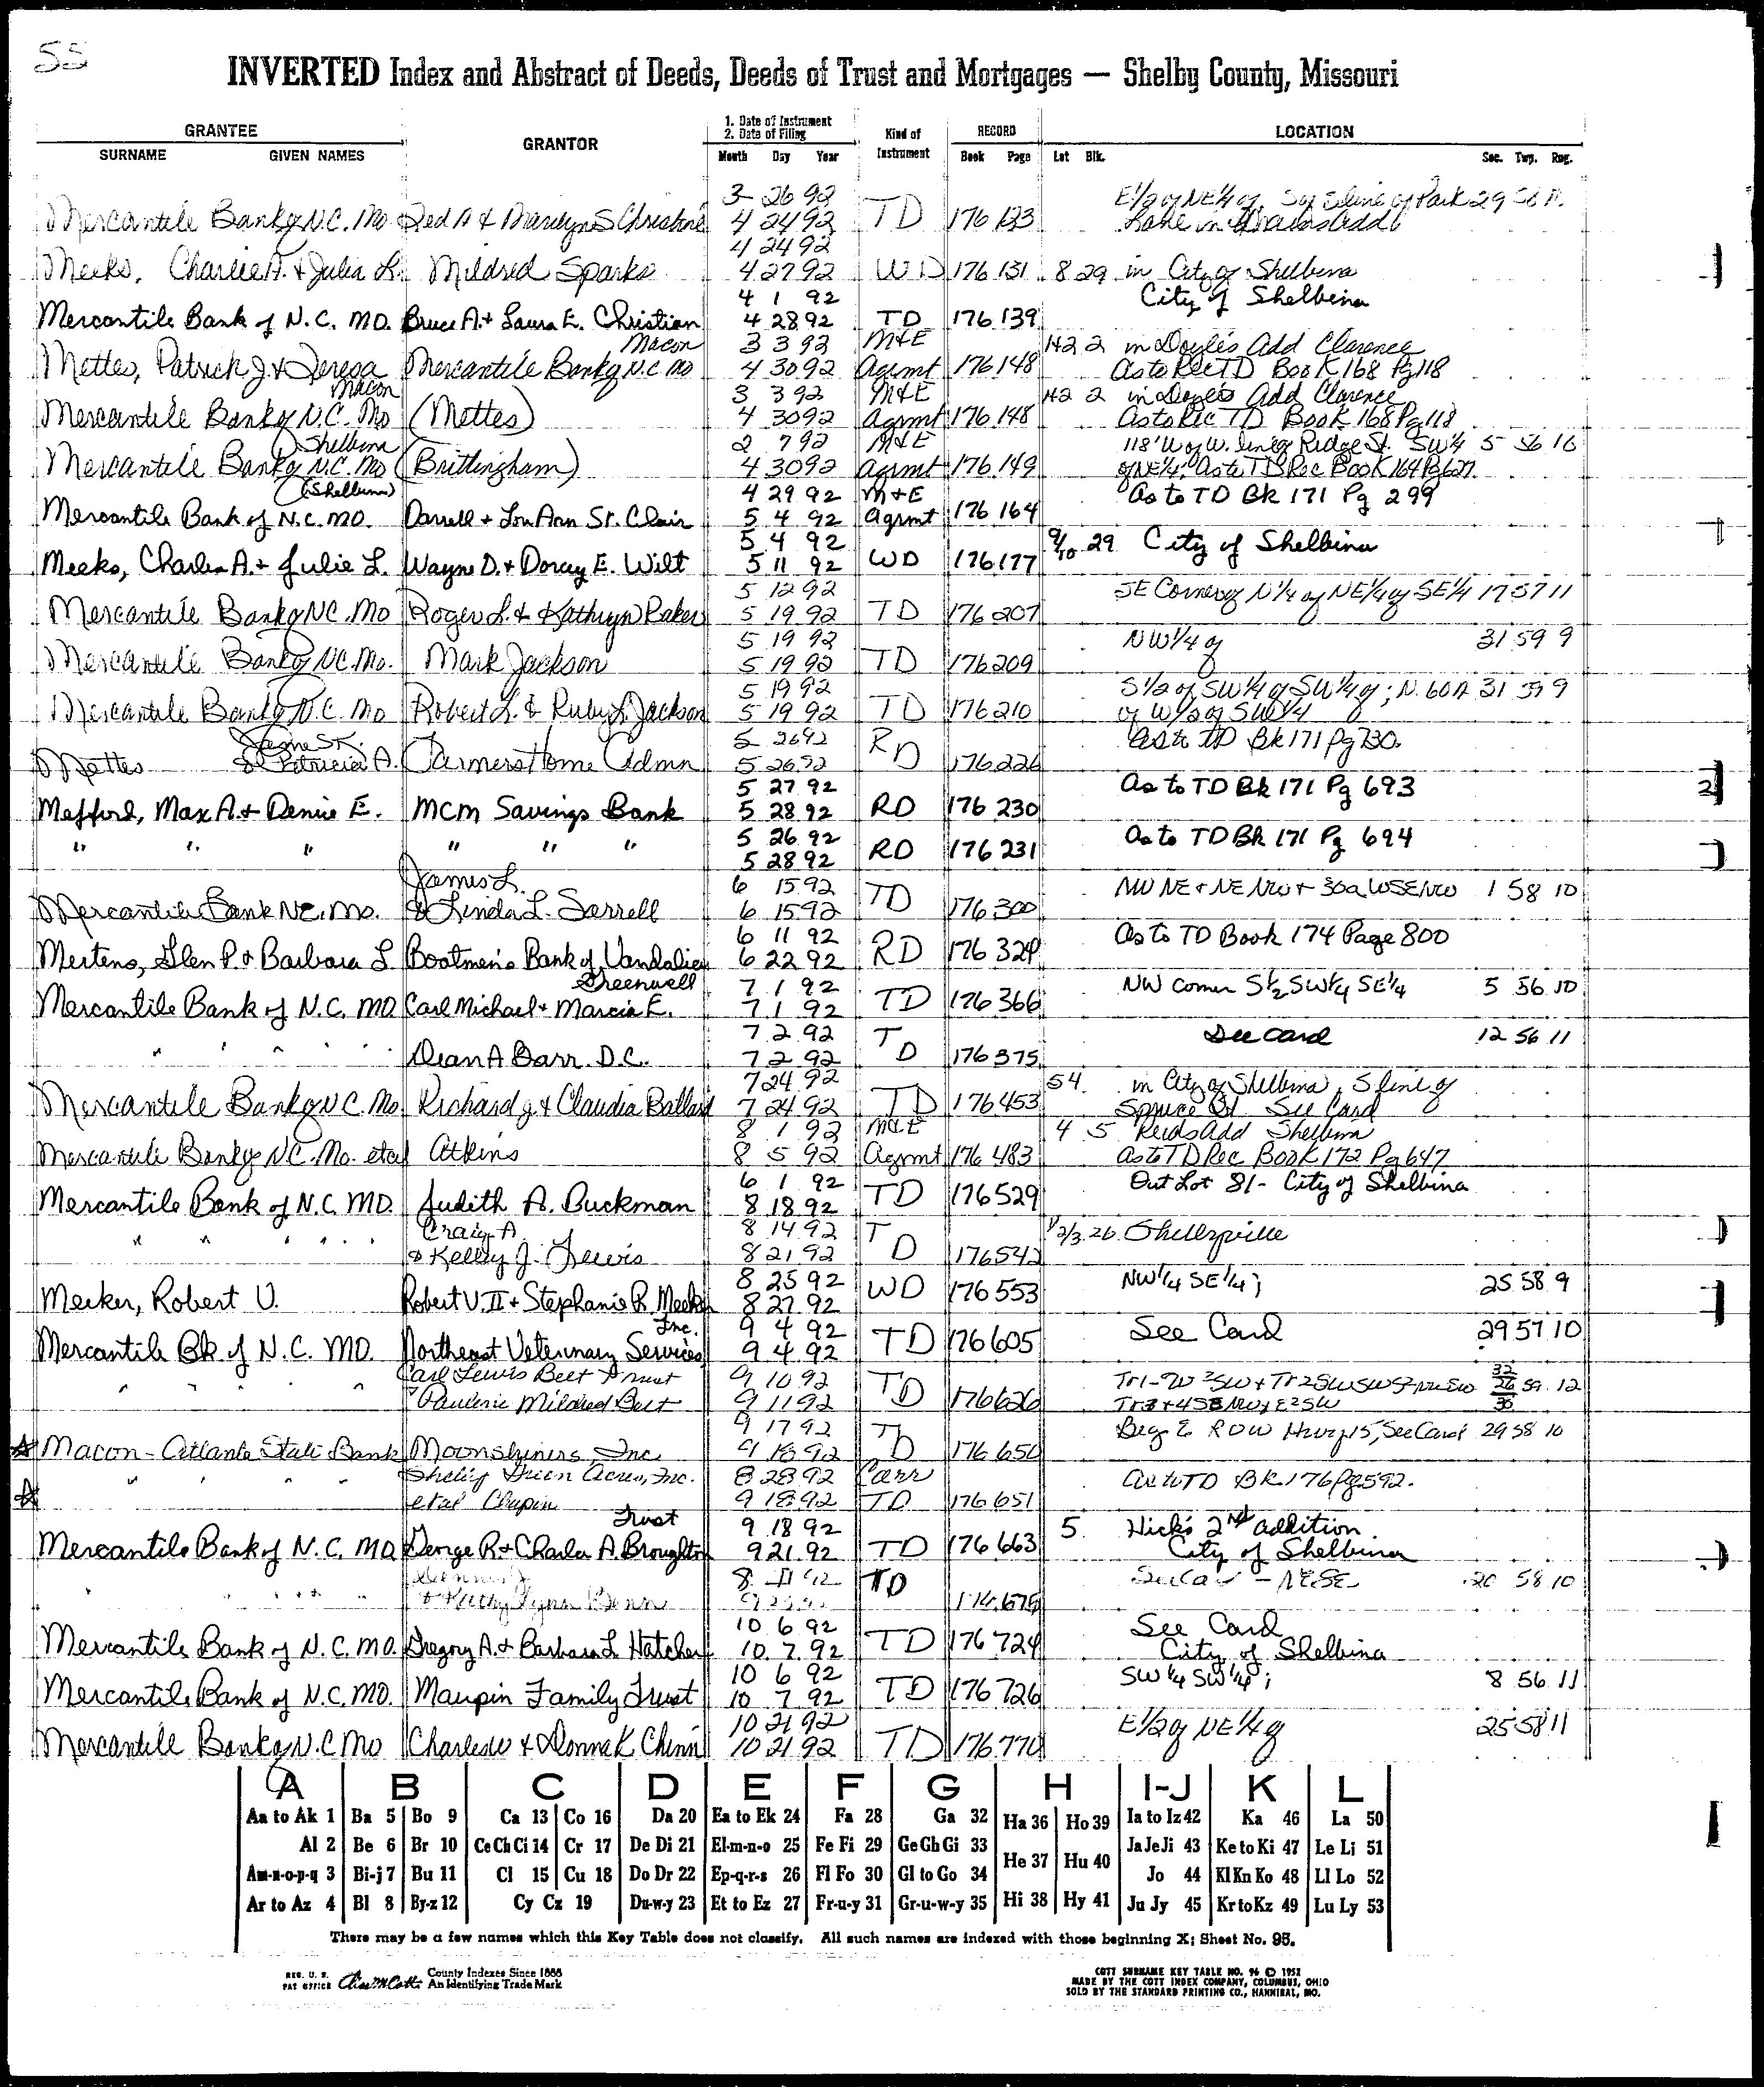 55
INVERTED Index and Abstract of Deeds, Deeds of Trust and Mortgages — Shelby County, Missouri
GRANTEE
SURNAME GIVEN NAMES
GRANTOR
1. Date of Instrument
2. Date of Filing
Month Day Year
Kind of Instrument
RECORD
Book Page
LOCATION
Lot Blk. Sec. Twp. Rng.
3 26 92 E 1/2 of NE 1/4 of, S of S line of Park 29
Mercantile Bank of N.C. Mo. Ted A & Marilyn S Christine 4 24 92 TD 176 123 Lane in Add
4 24 92
Meeks, Charlie A. & Julia L. Mildred Sparks 4 27 92 WD 176 131 8 29 in City of Shelbina
4 1 92 City of Shelbina
Mercantile Bank of N.C. MO. Bruce A. + Laura E. Christian 4 28 92 TD 176 139
Macon 3 3 92 M&E 1+2 2 in Doyle's Add Clarence
Mettes, Patrick J. & Teresa Mercantile Bank of N.C Mo 4 30 92 Agrmt 176 148 As to Rec TD Book 168 Pg 118
Macon 3 3 92 M&E 1+2 2 in Doyle's Add Clarence
Mercantile Bank of N.C. Mo (Mettes) 4 30 92 Agrmt 176 148 As to Rec TD Book 168 Pg 118
Shelbina 2 7 92 M&E 118' W of W. line of Ridge St. SW 1/4 5 56 10
Mercantile Bank of N.C. Mo (Brittingham) 4 30 92 agrmt 176 149 of NE 1/4, As to TD Rec Book 164 Pg 627.
(Shelbina) 4 29 92 M+E As to TD Bk 171 Pg 299
Mercantile Bank of N.C. MO. Darrell + Lou Ann St. Clair 5 4 92 Agrmt 176 164
5 4 92 9/10 29 City of Shelbina
Meeks, Charles A. + Julie L. Wayne D. + Dorcey E. Wilt 5 11 92 WD 176 177
5 12 92 SE Corner of N 1/4 of NE 1/4 of SE 1/4 17 57 11
Mercantile Bank of NC. Mo Roger L. & Kathryn Baker 5 19 92 TD 176 207
5 19 92 NW 1/4 of 31 59 9
Mercantile Bank of N.C. Mo. Mark Jackson 5 19 92 TD 176 209
5 19 92 S 1/2 of SW 1/4 of SW 1/4 of; N. 60 A 31 59 9
Mercantile Bank of N.C. Mo Robert L. & Ruby L. Jackson 5 19 92 TD 176 210 of W 1/2 of SW 1/4
5 26 92 RD As to TD Bk 171 Pg 730.
Mettes & Patricia A. Farmers Home Admn 5 26 92 176 226
5 27 92 As to TD Bk 171 Pg 693
Mefford, Max A. + Denise E. MCM Savings Bank 5 28 92 RD 176 230
5 26 92 As to TD Bk 171 Pg 694
" " " " " " 5 28 92 RD 176 231
James L. 6 15 92 TD NW NE + NE NW + 30a WSENW 1 58 10
Mercantile Bank NC. Mo. & Linda L. Sarrell 6 15 92 176 300
6 11 92 As to TD Book 174 Page 800
Mertens, Glen P. & Barbara L Boatmen's Bank of Vandalia 6 22 92 RD 176 324
Greenwell 7 1 92 NW Corner S 1/2 SW 1/4 SE 1/4 5 56 10
Mercantile Bank of N.C. MO Carl Michael + Marcia E. 7 1 92 TD 176 366
7 2 92 See Card 12 56 11
" " " " Dean A Barr. D.C. 7 2 92 TD 176 375
7 24 92 54 in City of Shelbina, S line of
Mercantile Bank of N C. Mo Richard J & Claudia Ballard 7 24 92 TD 176 453 Spruce St. See Card
8 1 92 M&E 4 5 Reids Add Shelbina
Mercantile Bank of N.C. Mo. etal Atkins 8 5 92 Agrmt 176 483 As to TD Rec Book 172 Pg 647
6 1 92 Out Lot 81 - City of Shelbina
Mercantile Bank of N.C. MO. Judith A. Buckman 8 18 92 TD 176 529
Craig A. 8 14 92 1/2/3 26 Shelbyville
" " " " & Kelley J. Lewis 8 21 92 TD 176 542
8 25 92 NW 1/4 SE 1/4; 25 58 9
Meeker, Robert V. Robert V. II + Stephanie R. Meeker 8 27 92 WD 176 553
Inc. 9 4 92 See Card 29 57 10
Mercantile Bk. of N.C. MO. Northeast Veterinary Services 9 4 92 TD 176 605
Carl Lewis Best Trust 9 10 92 Tr 1 - W 2 SW + Tr 2 SWSW 59 12
" " " " Paulene Mildred Best 9 11 92 TD 176 626
9 17 92 Beg E ROW Hwy 15, See Card 29 58 10
Macon-Atlanta State Bank Moonshiners Inc 9 18 92 TD 176 650
Shelby Green Acres, Inc. 8 28 92 Corr As to TD BK 176 Pg 592.
" " " " etal Chapin 9 18 92 TD 176 651
Trust 9 18 92 5 Hick's 2nd addition
Mercantile Bank of N.C. MO George R + Charla A. Broughton 9 21 92 TD 176 663 City of Shelbina
TD NESE 20 58 10
10 6 92 See Card
Mercantile Bank of N.C. MO. Gregory A. + Barbara L Hatcher 10 7 92 TD 176 724 City of Shelbina
10 6 92 SW 1/4 SW 1/4; 8 56 11
Mercantile Bank of N.C. MO. Maupin Family Trust 10 7 92 TD 176 726
10 21 92 E 1/2 of NE 1/4 of 25 58 11
Mercantile Bank of N.C Mo Charles W & Donna K Chinn 10 21 92 TD 176 770
A B C D E F G H I-J K L
Aa to Ak 1 Ba 5 Bo 9 Ca 13 Co 16 Da 20 Ea to Ek 24 Fa 28 Ga 32 Ha 36 Ho 39 Ia to Iz 42 Ka 46 La 50
Al 2 Be 6 Br 10 Ce Ch Ci 14 Cr 17 De Di 21 El-m-n-o 25 Fe Fi 29 Ge Gh Gi 33 He 37 Hu 40 Ja Je Ji 43 Ke to Ki 47 Le Li 51
Am-n-o-p-q 3 Bi-j 7 Bu 11 Cl 15 Cu 18 Do Dr 22 Ep-q-r-s 26 Fl Fo 30 Gl to Go 34 Jo 44 Kl Kn Ko 48 Ll Lo 52
Ar to Az 4 Bl 8 By-z 12 Cy Cz 19 Du-w-y 23 Et to Ez 27 Fr-u-y 31 Gr-u-w-y 35 Hi 38 Hy 41 Ju Jy 45 Kr to Kz 49 Lu Ly 53
There may be a few names which this Key Table does not classify. All such names are indexed with those beginning X; Sheet No. 95.
REG. U. S. PAT OFFICE County Indexes Since 1888 An Identifying Trade Mark
COTT SURNAME KEY TABLE NO. 96 © 1952
MADE BY THE COTT INDEX COMPANY, COLUMBUS, OHIO
SOLD BY THE STANDARD PRINTING CO., HANNIBAL, MO.